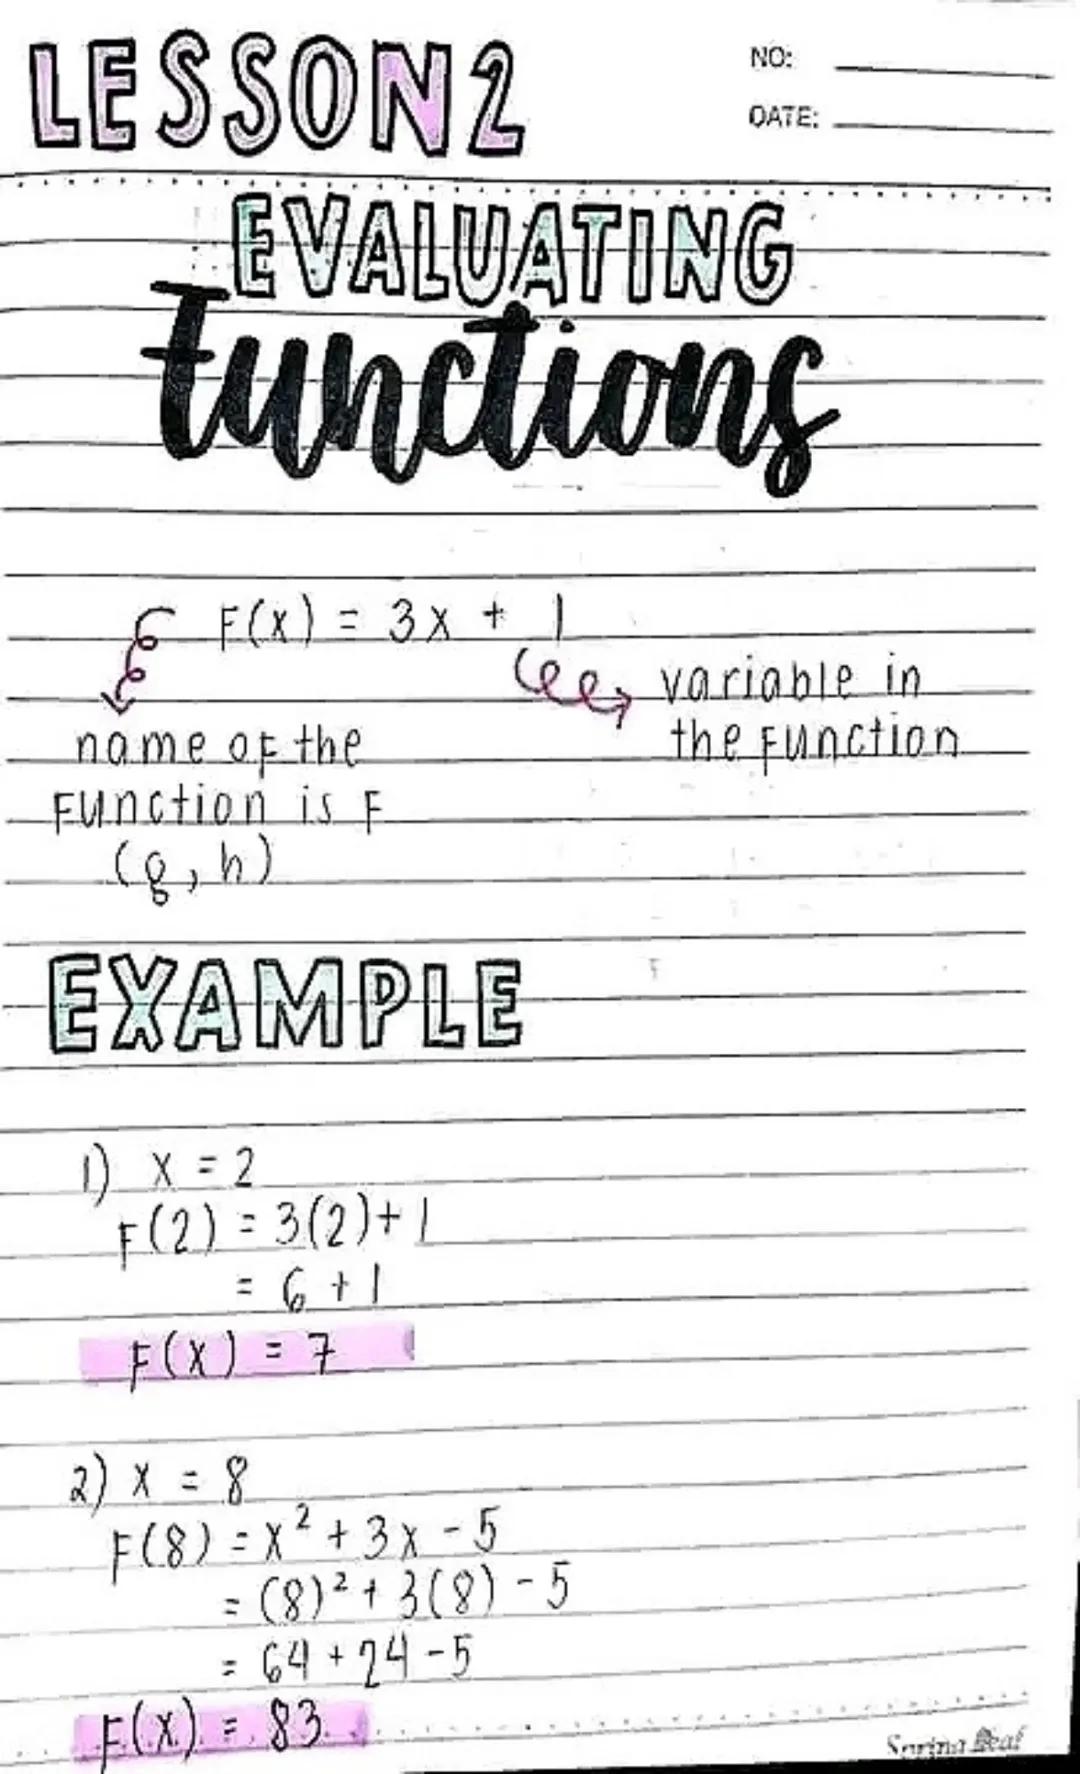 LESSON 2
NO:
DATE:
EVALUATING
Functions
F(x) = 3x + 1
variable in
the function
name of the
function is F
(g, h)
EXAMPLE
1) x = 2
F(2) = 3(2) + 1
= 6 + 1
F(x) = 7
2) x = 8
F(8) = x² + 3x - 5
= (8)² + 3(8) - 5
= 64 + 24 - 5
F(x) = 83